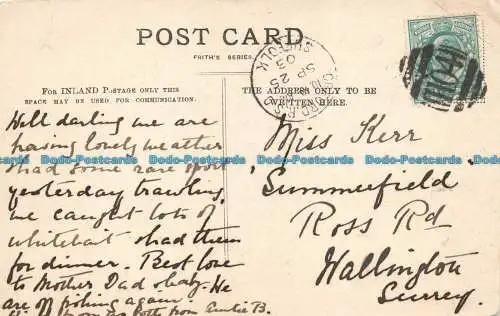 POST CARD
FRITH'S SERIES
FOR INLAND POSTAGE ONLY THIS
SPACE MAY BE USED FOR COMMUNICATION.
THE ADDRESS ONLY TO BE
WRITTEN HERE.
SUFFOLK
SP 25
03
Well darling we are
having lovely weather
& had some rare sport
yesterday trawling
we caught lots of
whitebait & had them
for dinner. Best love
to Mother Dad & baby. We
are off fishing again.
from us both from Auntie B.
Miss Kerr
"Summerfield"
Ross Rd
Wallington
Surrey.
bidStart Postcards bidStart Postcards bidStart Postcards